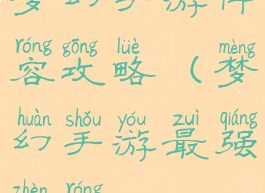 梦幻手游阵
róng gōng lüè mèng
容攻略（梦
huàn shǒu yóu zuì qiáng
幻手游最强
zhèn róng